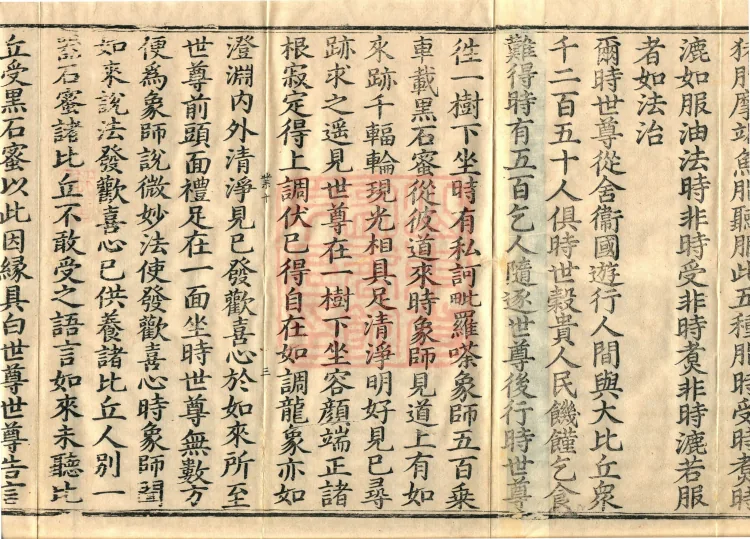 魚脂聽服此五種脂時受時煑時
漉如服油法時非時受非時煑非時漉若服
者如法治
爾時世尊從舍衞國遊行人間與大比丘衆
千二百五十人俱時世穀貴人民饑饉乞食
難得時有五百乞人隨逐世尊後行時世尊
徃一樹下坐時有私訶毗羅嗏象師五百乗
車載黑石蜜從彼道來時象師見道上有如
來跡千輻輪現光相具足清淨明好見已尋
跡求之遥見世尊在一樹下坐容顔端正諸
根寂定得上調伏已得自在如調龍象亦如
業十 三
澄淵内外清淨見已發歡喜心於如來所至
世尊前頭面禮足在一面坐時世尊無數方
便為象師說微妙法使發歡喜心時象師聞
如來說法發歡喜心已供養諸比丘人別一
器石蜜諸比丘不敢受之語言如來未聽比
丘受黑石蜜以此因緣具白世尊世尊告言